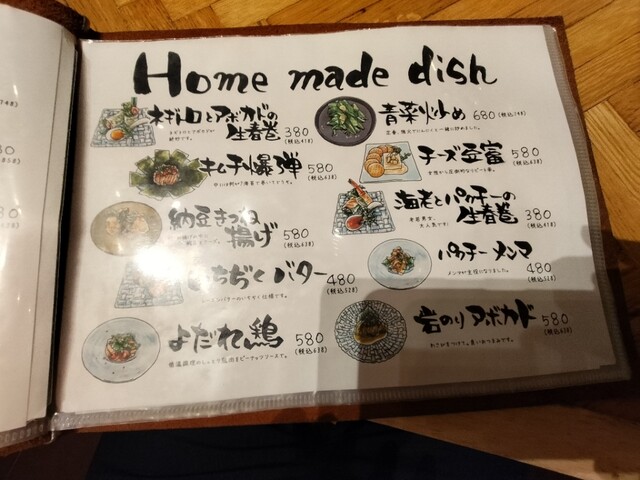 Home made dish
ネギトロとアボカドの
生春巻 380
(税込418)
キムチ爆弾 580
(税込638)
納豆きつね
揚げ 580
(税込638)
いちぢくバター
480
(税込528)
よだれ鶏 580
(税込638)
青菜炒め 680 (税込748)
チーズ豆富 580
(税込638)
海老とパクチーの
生春巻 380
(税込418)
大人気です。
パクチーメンマ
480
(税込528)
メンマが主役になりました。
岩のりアボカド 580
(税込638)